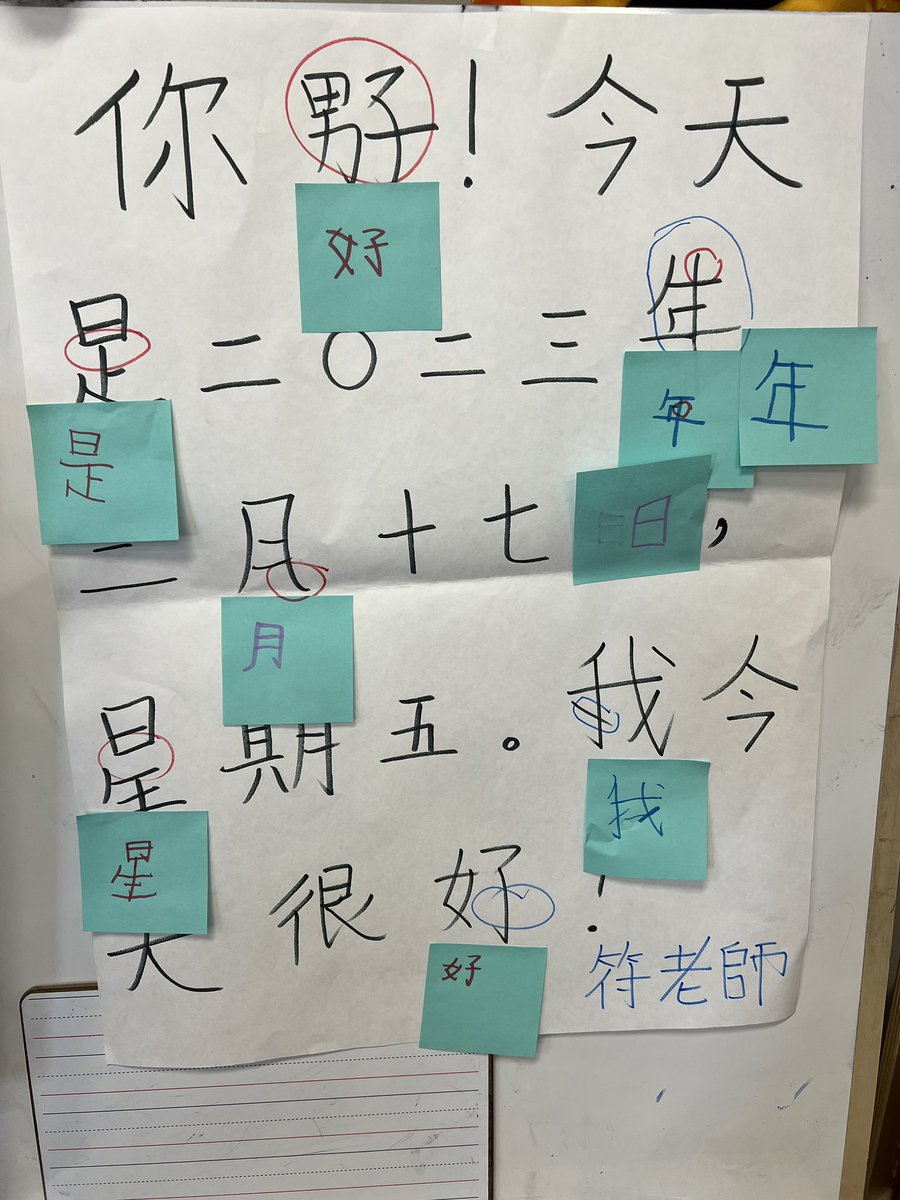 你男子！今天
好
是二〇二三年
是 年 年
二月十七日，
月
星期五。我今
星 我
天很好！
好
符老師